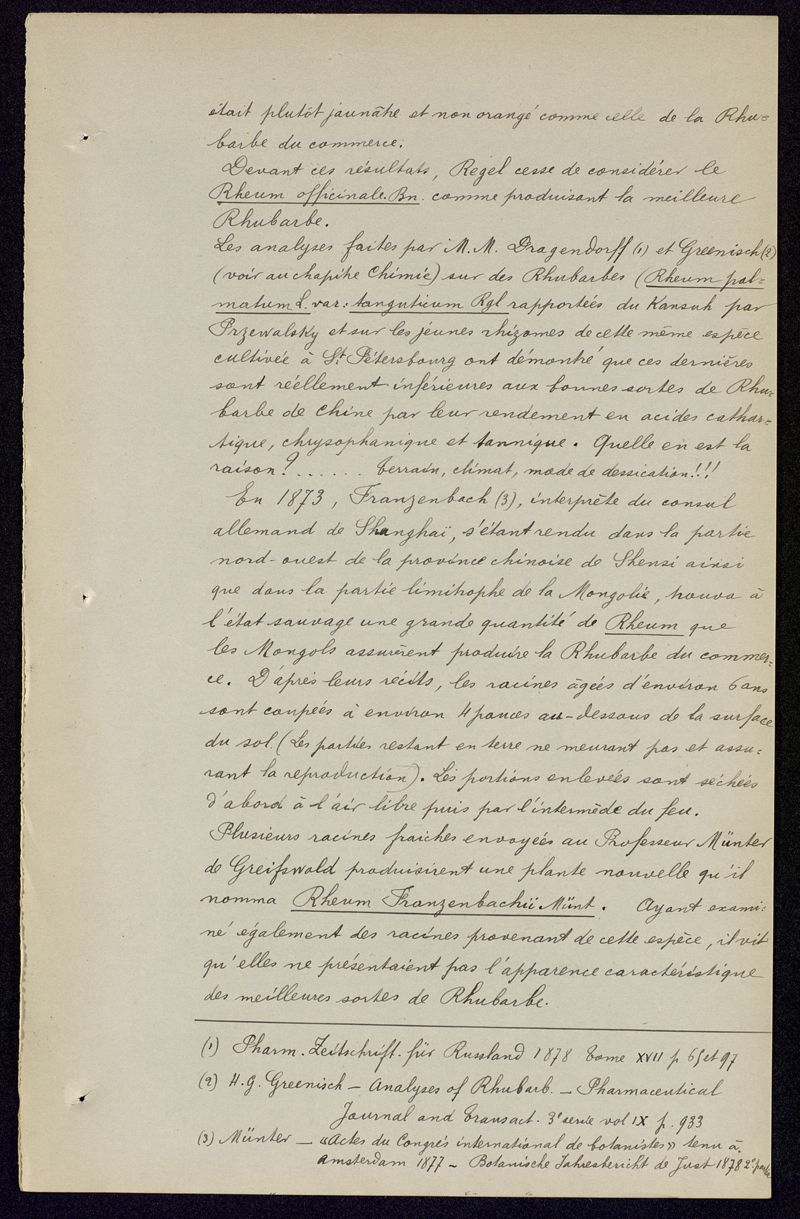 était plutôt jaunâtre et non orangé comme celle de la Rhu=
barbe du commerce.
Devant ces résultats, Regel cesse de considérer le
Rheum officinale. Bn. comme produisant la meilleure
Rhubarbe.
Les analyses faites par M.M. Dragendorff (1) et Greenisch (2)
(voir au chapitre Chimie) sur des Rhubarbes (Rheum pal=
matum L. var: tanguticum Rgl rapportées du Kansuh par
Przewalsky et sur les jeunes rhizomes de cette même espèce
cultivée à St Pétersbourg ont démontré que ces dernières
sont réellement inférieures aux bonnes sortes de Rhu=
barbe de Chine par leur rendement en acides cathar=
tique, chrysophanique et tannique. Quelle en est la
raison? ...... Terrain, climat, mode de dessication!!!
En 1873, Franzenbach (3), interprète du consul
allemand de Shanghaï, s'étant rendu dans la partie
nord-ouest de la province chinoise de Shensi ainsi
que dans la partie limitrophe de la Mongolie, trouva à
l'état sauvage une grande quantité de Rheum que
les Mongols assurèrent produire la Rhubarbe du commer=
ce. D'après leurs récits, les racines âgées d'environ 6 ans
sont coupées à environ 4 pouces au-dessous de la surface
du sol (Les parties restant en terre ne meurant pas et assu=
rant la reproduction). Les portions enlevées sont séchées
d'abord à l'air libre puis par l'intermède du feu.
Plusieurs racines fraiches envoyées au Professeur Münter
de Greifswald produisirent une plante nouvelle qu'il
nomma Rheum Franzenbachii Münt. Ayant exami=
né également des racines provenant de cette espèce, il vit
qu'elles ne présentaient pas l'apparence caractéristique
des meilleures sortes de Rhubarbe.
(1) Pharm. Zeitschrift. für Russland 1878 Tome XVII p 65 et 97
(2) H.G. Greenisch — Analyses of Rhubarb. — Pharmaceutical
Journal and Transact. 3e serie vol IX p. 933
(3) Münter — «Actes du Congrès international de botanistes» tenu à
Amsterdam 1877 — Botanische Jahresbericht de Just 1878 2e partie